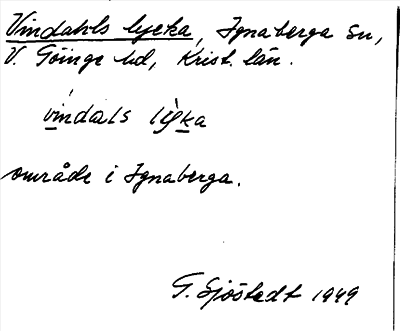 Vindahls lycka, Ignaberga sn,
V. Göinge hd, Krist. län.
vìndals lỳka
område i Ignaberga.
G. Sjöstedt 1949